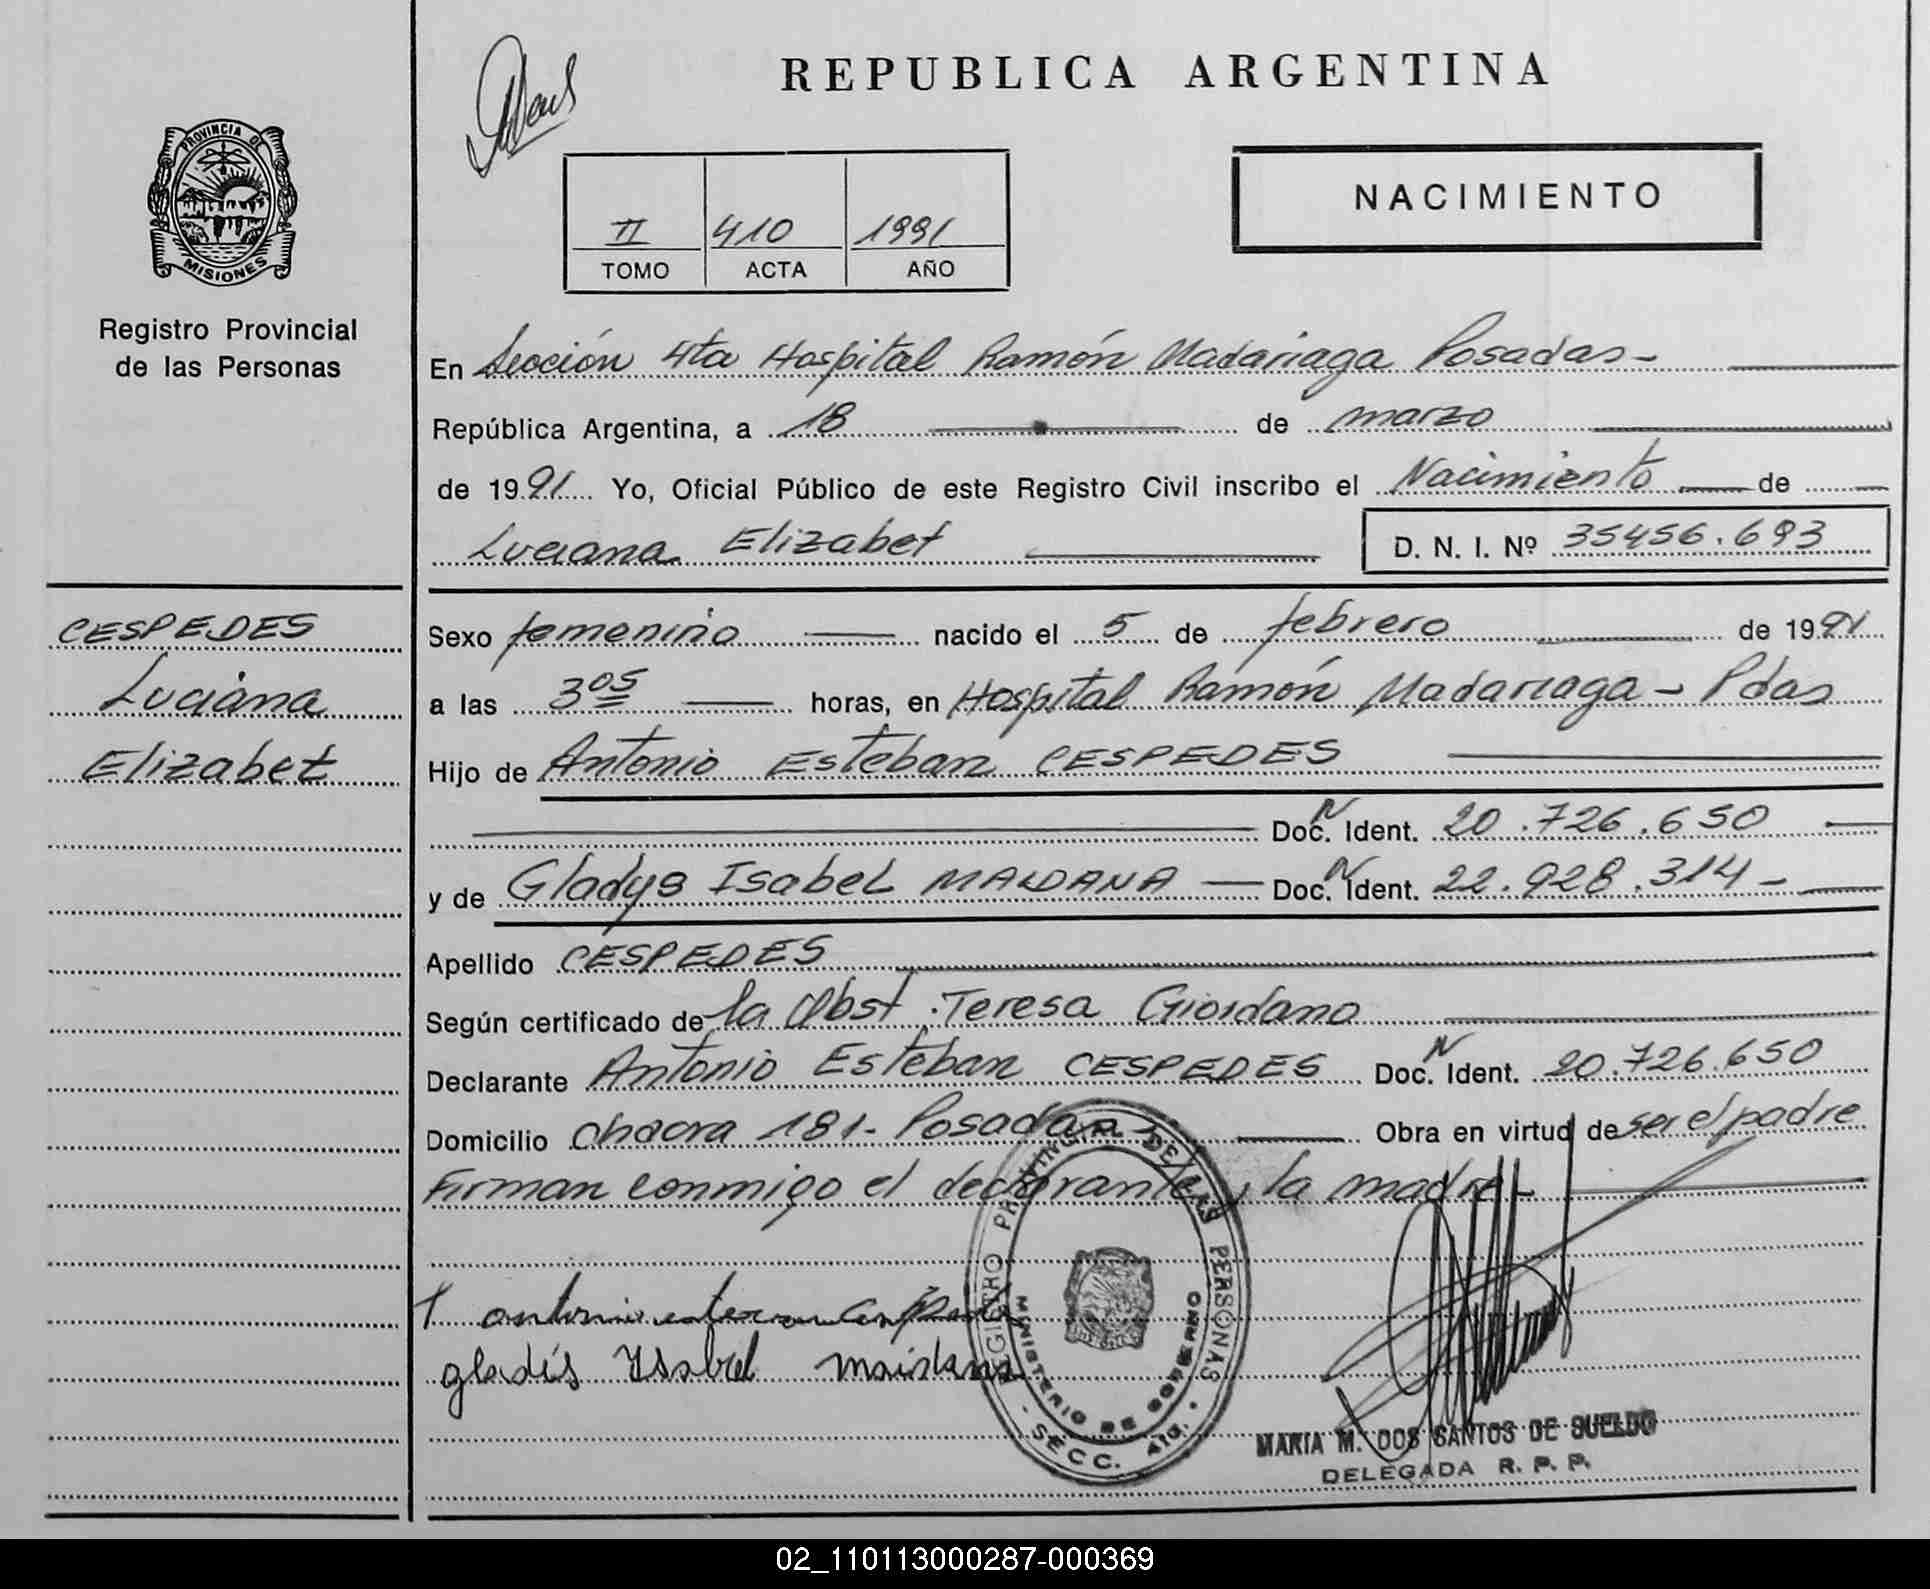 REPUBLICA ARGENTINA
PROVINCIA DE
MISIONES
Registro Provincial
de las Personas
II 410 1991
TOMO ACTA AÑO
NACIMIENTO
En Sección 4ta Hospital Ramón Madariaga Posadas -
República Argentina, a 18 de marzo
de 1991 Yo, Oficial Público de este Registro Civil inscribo el Nacimiento de
Luciana Elizabet D. N. I. Nº 35456.693
CESPEDES
Luciana
Elizabet
Sexo femenino nacido el 5 de febrero de 1991
a las 3 05 horas, en Hospital Ramón Madariaga - Pdas
Hijo de Antonio Esteban CESPEDES
Doc. N Ident. 20.726.650
y de Gladys Isabel MAIDANA Doc. N Ident. 22.928.314 -
Apellido CESPEDES
Según certificado de la Obst. Teresa Giordano
Declarante Antonio Esteban CESPEDES Doc. N Ident. 20.726.650
Domicilio Chacra 181 - Posadas - Obra en virtud de ser el padre
Firman conmigo el declarante, la madre -
antonio estevan
gladis Ysabel maidana
REGISTRO PROVINCIAL DE LAS PERSONAS
MINISTERIO DE GOBIERNO
- SECC. 4ta. -
MARIA M. DOS SANTOS DE SUELDO
DELEGADA R. P. P.
02_110113000287-000369